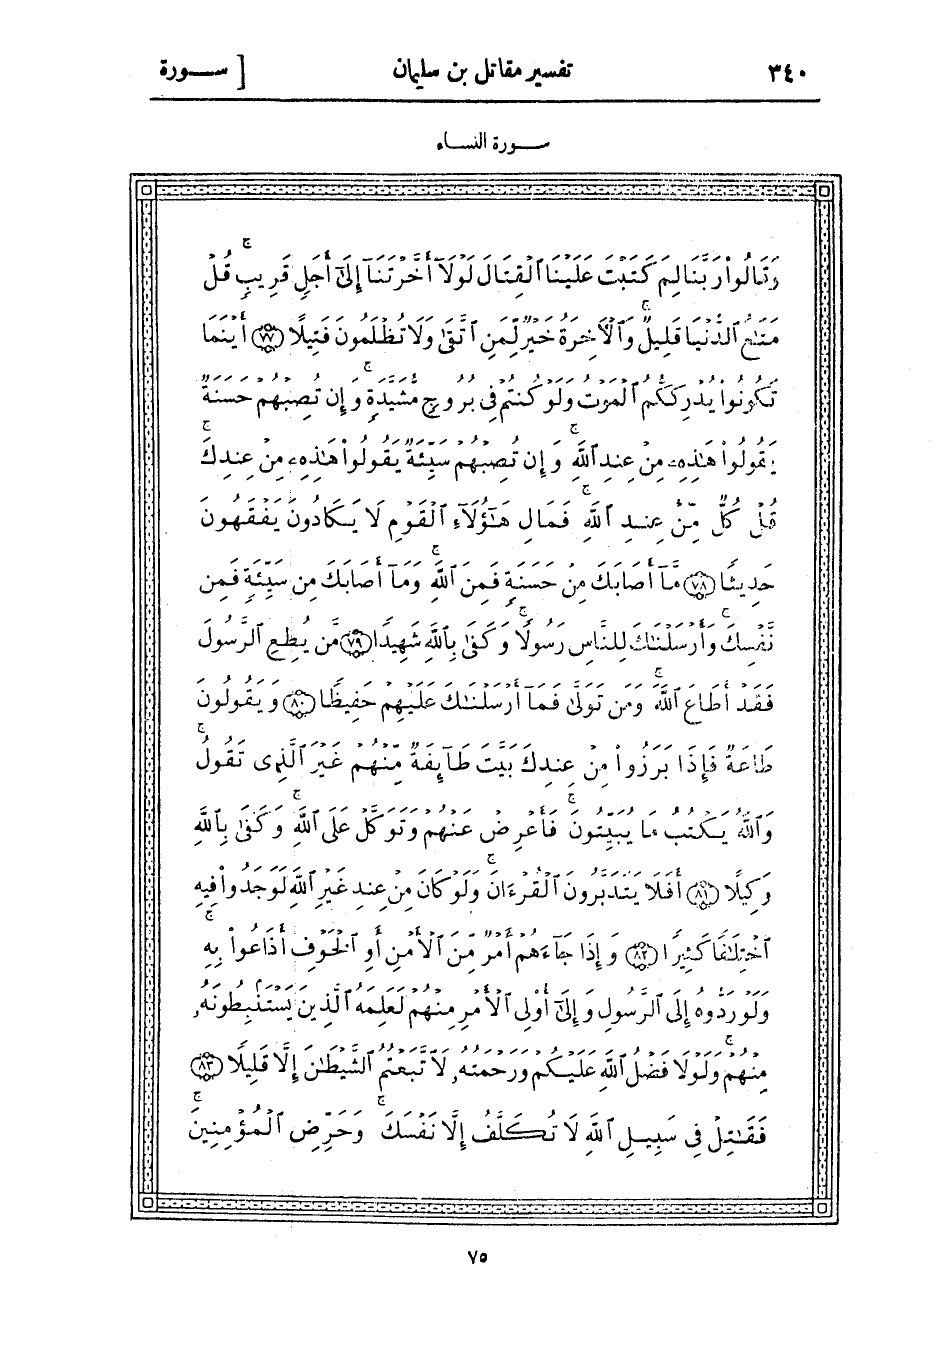 ٣٤٠ تفسير مقاتل بن سليمان [ سـورة
سـورة النسـاء
وَقَالُوا۟ رَبَّنَا لِمَ كَتَبْتَ عَلَيْنَا ٱلْقِتَالَ لَوْلَآ أَخَّرْتَنَآ إِلَىٰٓ أَجَلٍ قَرِيبٍ ۗ قُلْ
مَتَـٰعُ ٱلدُّنْيَا قَلِيلٌ وَٱلْأَخِرَةُ خَيْرٌ لِّمَنِ ٱتَّقَىٰ وَلَا تُظْلَمُونَ فَتِيلًا ﴿٧٧﴾ أَيْنَمَا
تَكُونُوا۟ يُدْرِككُّمُ ٱلْمَوْتُ وَلَوْ كُنتُمْ فِى بُرُوجٍ مُّشَيَّدَةٍ ۗ وَإِن تُصِبْهُمْ حَسَنَةٌ
يَقُولُوا۟ هَـٰذِهِۦ مِنْ عِندِ ٱللَّهِ ۖ وَإِن تُصِبْهُمْ سَيِّئَةٌ يَقُولُوا۟ هَـٰذِهِۦ مِنْ عِندِكَ ۚ
قُلْ كُلٌّ مِّنْ عِندِ ٱللَّهِ ۖ فَمَالِ هَـٰٓؤُلَآءِ ٱلْقَوْمِ لَا يَكَادُونَ يَفْقَهُونَ
حَدِيثًا ﴿٧٨﴾ مَّآ أَصَابَكَ مِنْ حَسَنَةٍ فَمِنَ ٱللَّهِ ۖ وَمَآ أَصَابَكَ مِن سَيِّئَةٍ فَمِن
نَّفْسِكَ ۚ وَأَرْسَلْنَـٰكَ لِلنَّاسِ رَسُولًا ۚ وَكَفَىٰ بِٱللَّهِ شَهِيدًا ﴿٧٩﴾ مَّن يُطِعِ ٱلرَّسُولَ
فَقَدْ أَطَاعَ ٱللَّهَ ۖ وَمَن تَوَلَّىٰ فَمَآ أَرْسَلْنَـٰكَ عَلَيْهِمْ حَفِيظًا ﴿٨٠﴾ وَيَقُولُونَ
طَاعَةٌ فَإِذَا بَرَزُوا۟ مِنْ عِندِكَ بَيَّتَ طَآئِفَةٌ مِّنْهُمْ غَيْرَ ٱلَّذِى تَقُولُ ۖ
وَٱللَّهُ يَكْتُبُ مَا يُبَيِّتُونَ ۖ فَأَعْرِضْ عَنْهُمْ وَتَوَكَّلْ عَلَى ٱللَّهِ ۚ وَكَفَىٰ بِٱللَّهِ
وَكِيلًا ﴿٨١﴾ أَفَلَا يَتَدَبَّرُونَ ٱلْقُرْءَانَ ۚ وَلَوْ كَانَ مِنْ عِندِ غَيْرِ ٱللَّهِ لَوَجَدُوا۟ فِيهِ
ٱخْتِلَـٰفًا كَثِيرًا ﴿٨٢﴾ وَإِذَا جَآءَهُمْ أَمْرٌ مِّنَ ٱلْأَمْنِ أَوِ ٱلْخَوْفِ أَذَاعُوا۟ بِهِۦ ۖ
وَلَوْ رَدُّوهُ إِلَى ٱلرَّسُولِ وَإِلَىٰٓ أُو۟لِى ٱلْأَمْرِ مِنْهُمْ لَعَلِمَهُ ٱلَّذِينَ يَسْتَنۢبِطُونَهُۥ
مِنْهُمْ ۗ وَلَوْلَا فَضْلُ ٱللَّهِ عَلَيْكُمْ وَرَحْمَتُهُۥ لَٱتَّبَعْتُمُ ٱلشَّيْطَـٰنَ إِلَّا قَلِيلًا ﴿٨٣﴾
فَقَـٰتِلْ فِى سَبِيلِ ٱللَّهِ لَا تُكَلَّفُ إِلَّا نَفْسَكَ ۚ وَحَرِّضِ ٱلْمُؤْمِنِينَ ۖ
٧٥